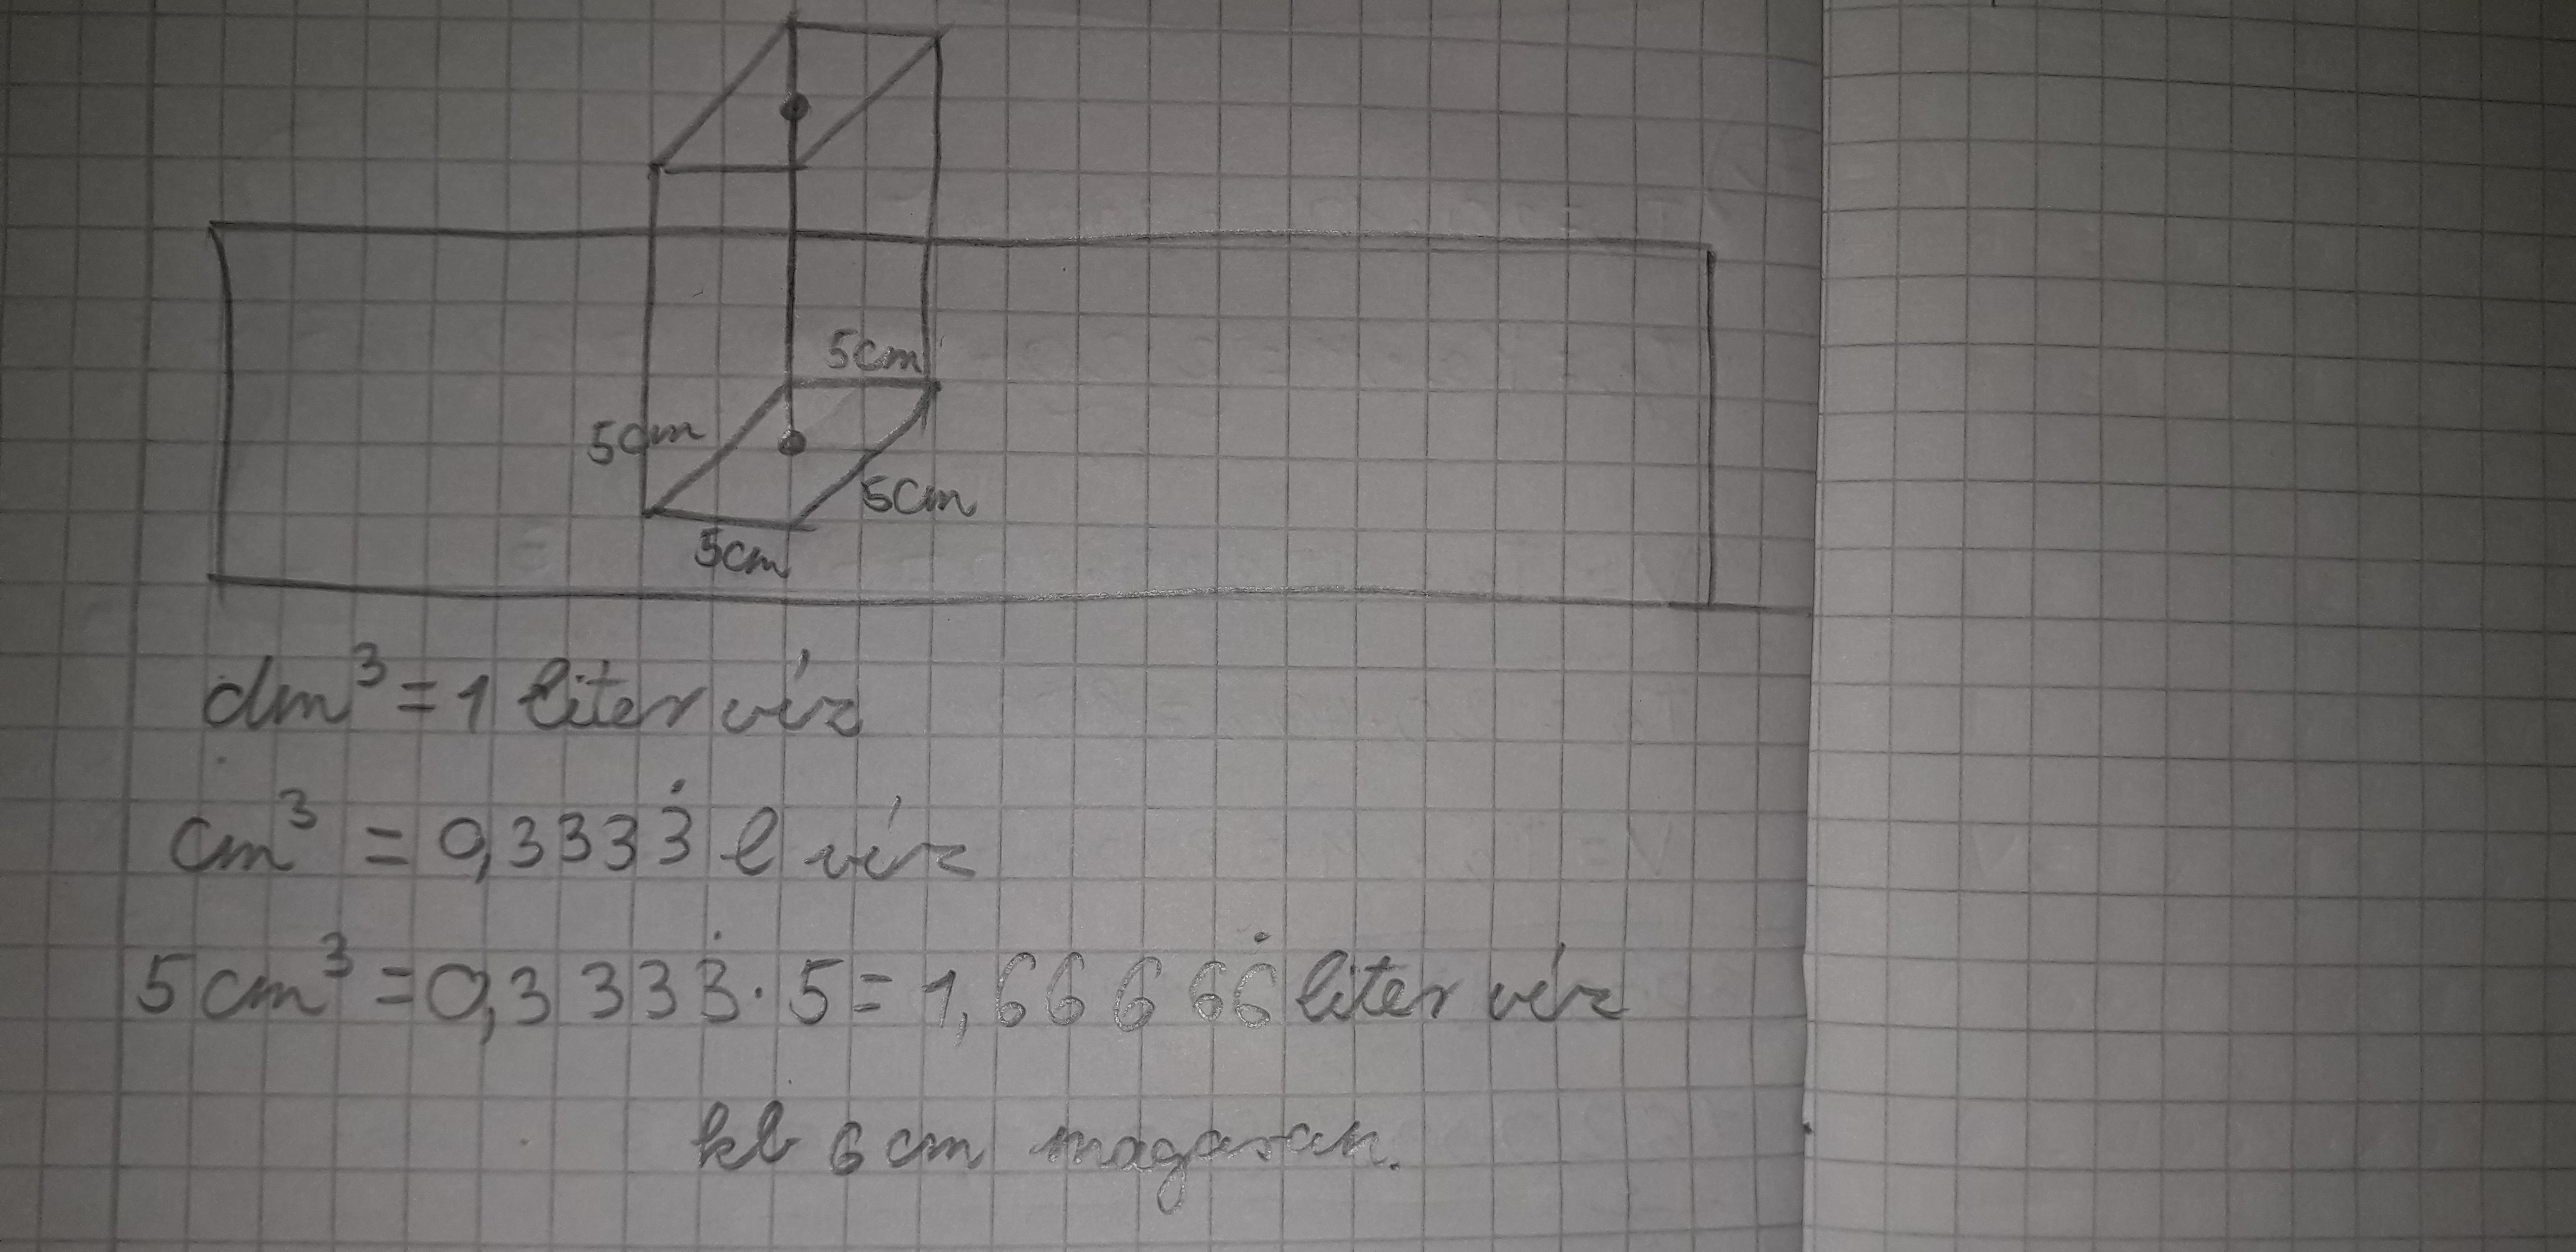 5cm
5cm
5cm
5cm
dm³ = 1 liter víz
cm³ = 0,3333̇ l víz
5 cm³ = 0,3333̇ · 5 = 1,66666̇ liter víz
kb 6 cm magasan.